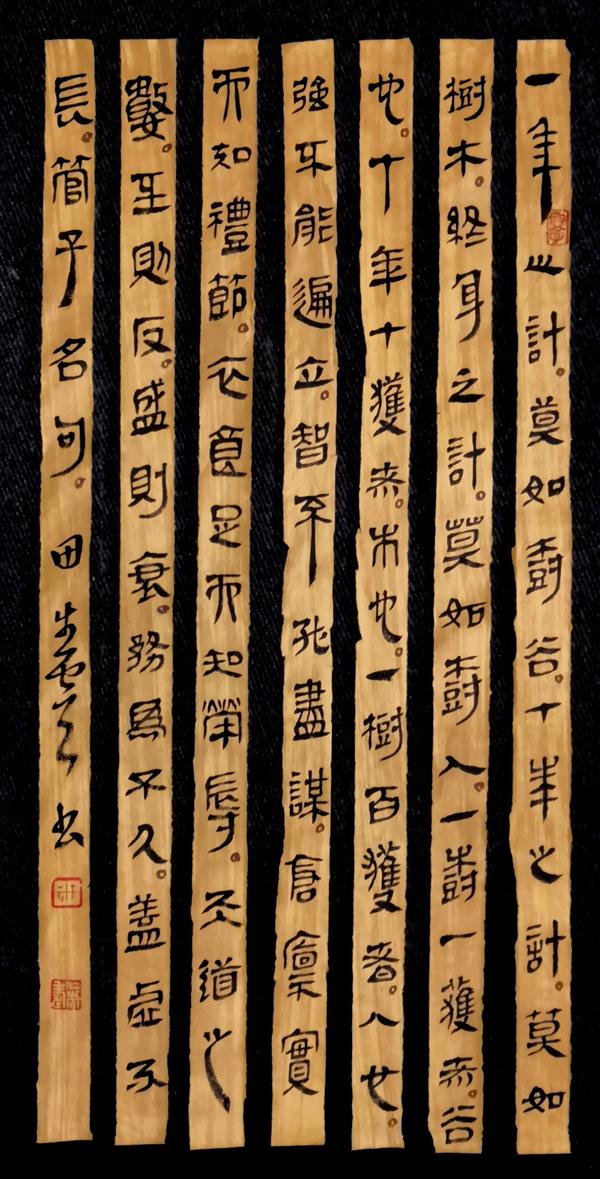 一年之計。莫如樹谷。十年之計。莫如
樹木。終身之計。莫如樹人。一樹一獲者。谷
也。十年十獲者。木也。一樹百獲者。人也。
強不能遍立。智不能盡謀。倉廩實
而如禮節。衣食足而知榮辱。天道之
數。至則反。盛則衰。務爲不久。蓋虛不
長。管子名句。田書